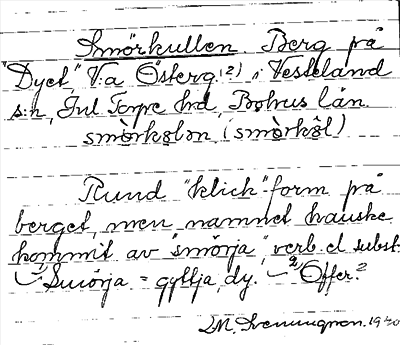 Smörkullen. Berg på
"Dyet", V:a Österg.(2) i Vesteland
s:n, Inl Torpe hd, Bohus län.
smòrkələn (smòrkə̀l)
Rund "klick"form på
berget, men namnet kanske
kommit av "smörja", verb. el. subst.
Smörja = gyttja, dy. 2 Offer?
M. Svenungson. 1940